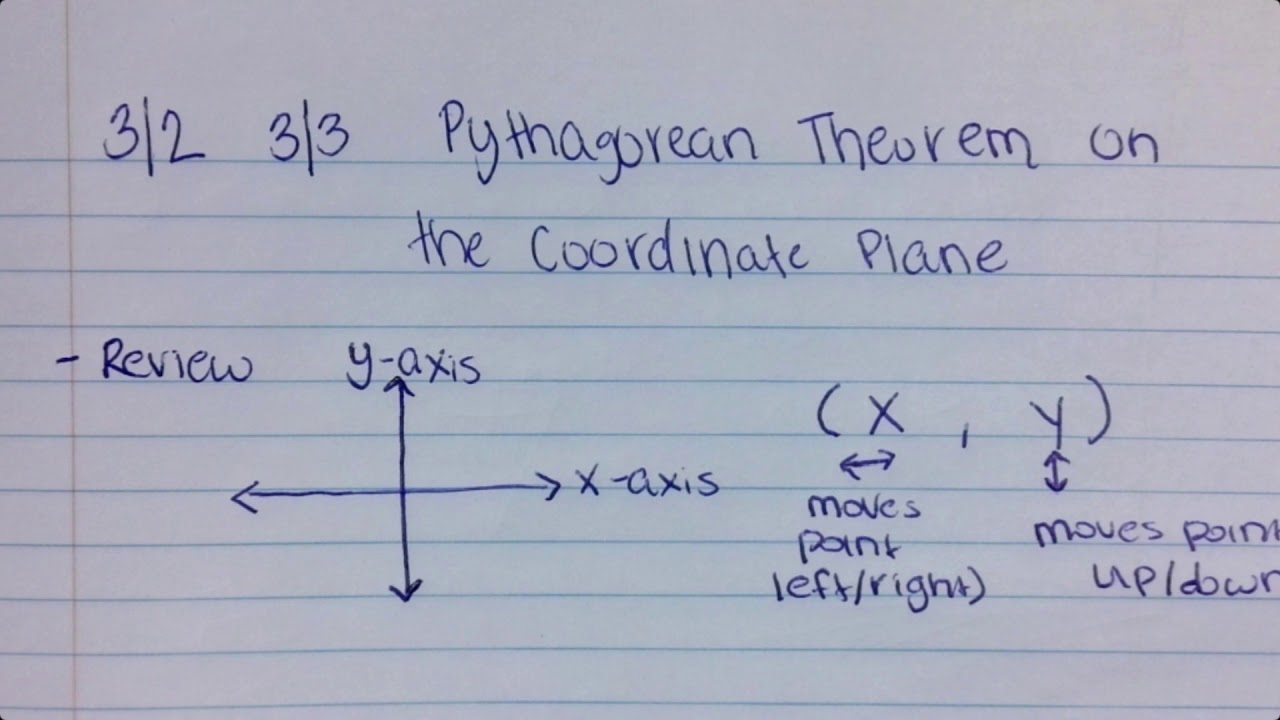 3/2 3/3 Pythagorean Theorem on
the Coordinate Plane
- Review
y-axis
x-axis
(x, y)
moves
point
left/right)
moves point
up/down